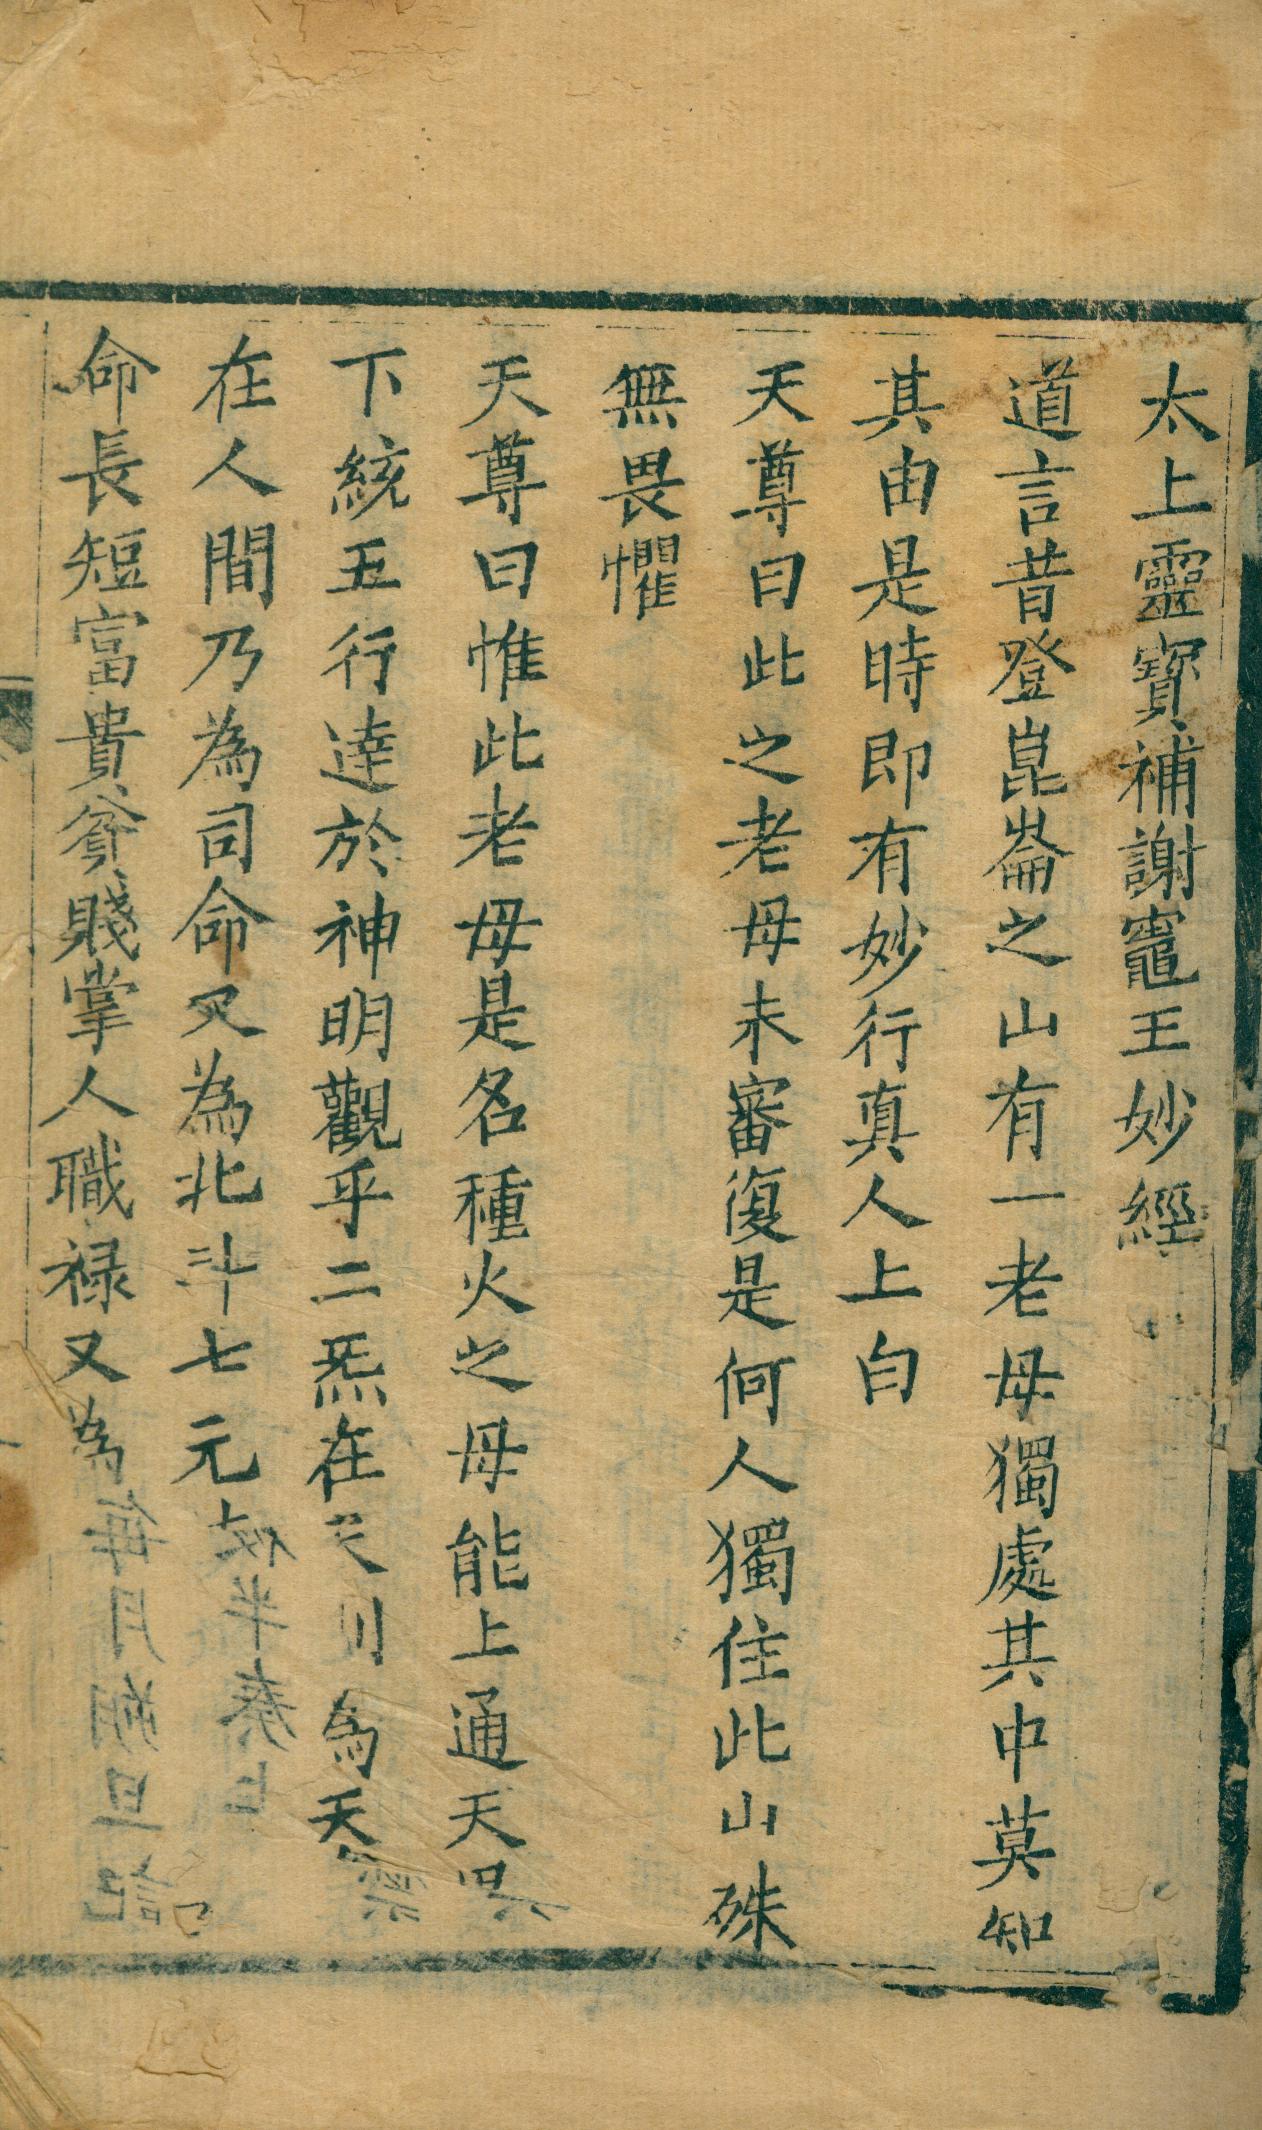 太上靈寳補謝竈王妙經
道言昔登崑崙之山有一老母獨處其中莫知
其由是時即有妙行真人上白
天尊曰此之老母未審復是何人獨住此山殊
無畏懼
天尊曰惟此老母是名種火之母能上通天
下統五行達於神明觀乎二炁在天則為天
在人間乃為司命又為北斗七元
命長短富貴貧賤掌人職禄又為
夜半奏上
每月朔旦記